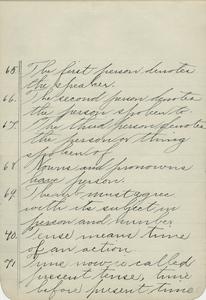 65. The first person denotes
the speaker.
66. The second person denotes
the person spoken to.
67. The third person denotes
the person or thing
spoken of
68 Nouns and pronouns
have person.
69. must agree
with its subject in
person and number
70. Tense means time
of an action
71 Time now is called
present tense, time
before present time